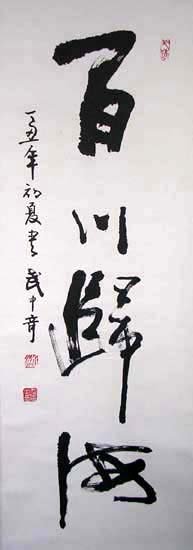 百川歸海
丁丑年初夏书武中奇